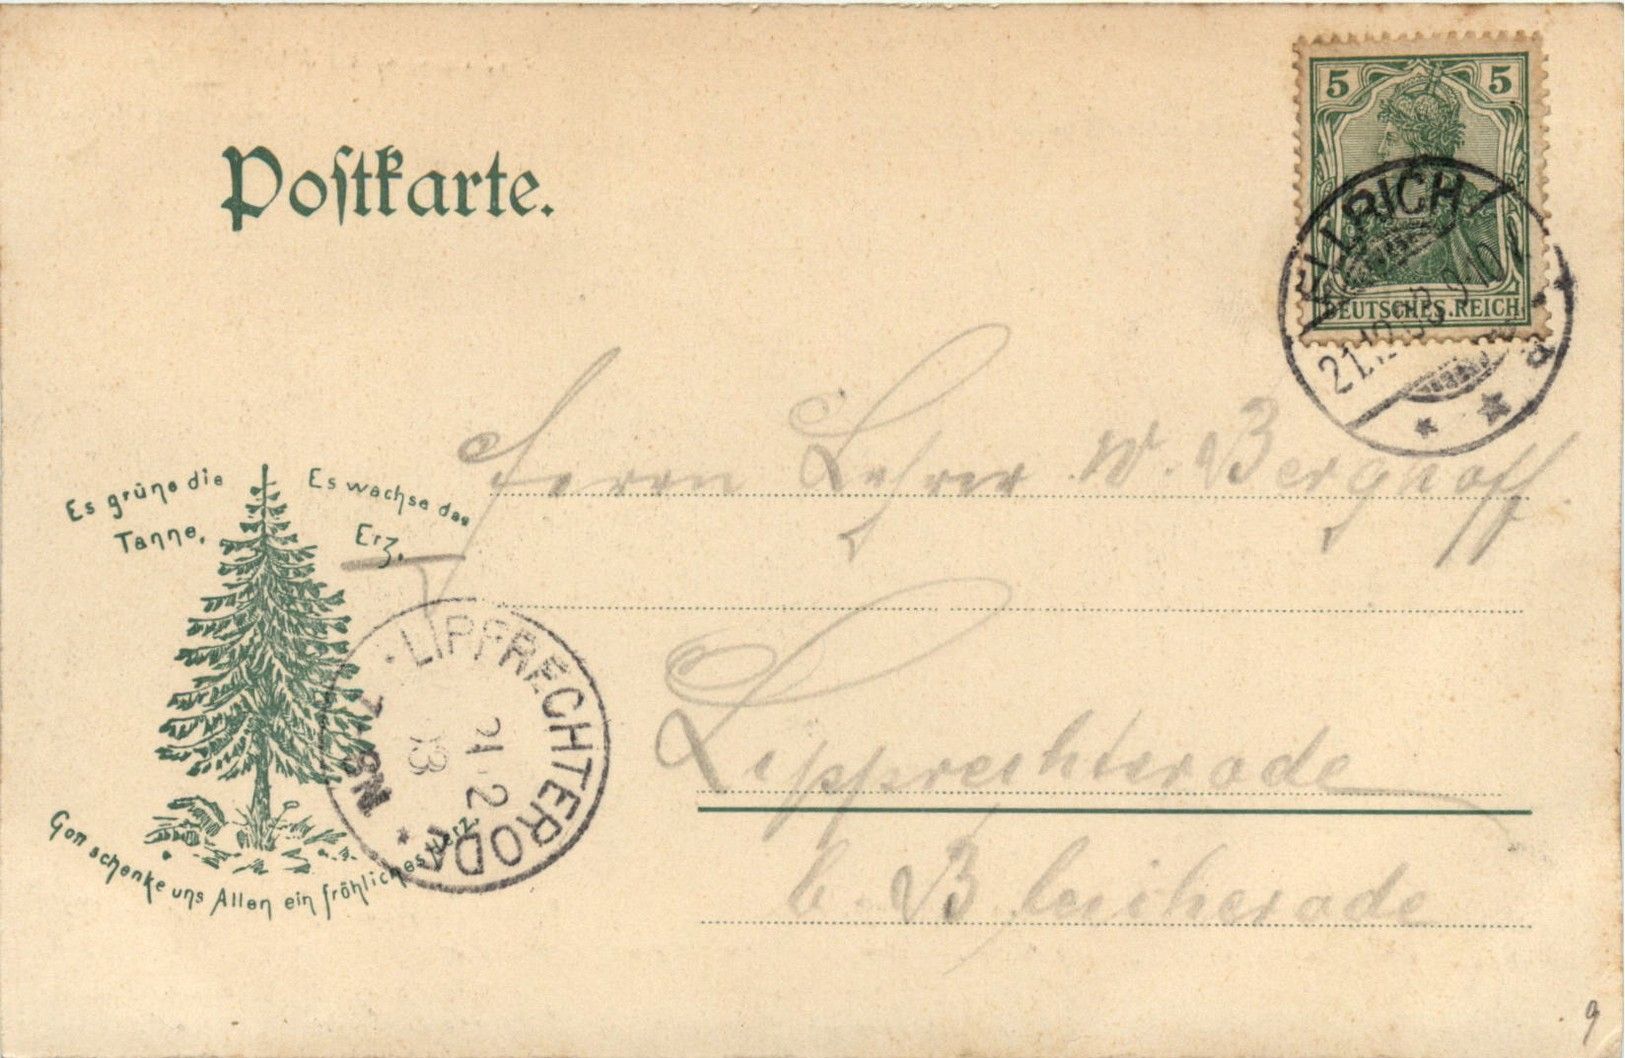 5 5
Postkarte.
ELLRICH
DEUTSCHES.REICH
21.12.03. 9-10V
a
* *
Es grüne die
Tanne,
Es wachse das
Erz,
Gott schenke uns Allen ein fröhliches Herz.
Herrn Lehrer W. Berghoff.
LIPPRECHTERODA
21 12
03
7-8N
Lipprechterode
b. Bleicherode
9